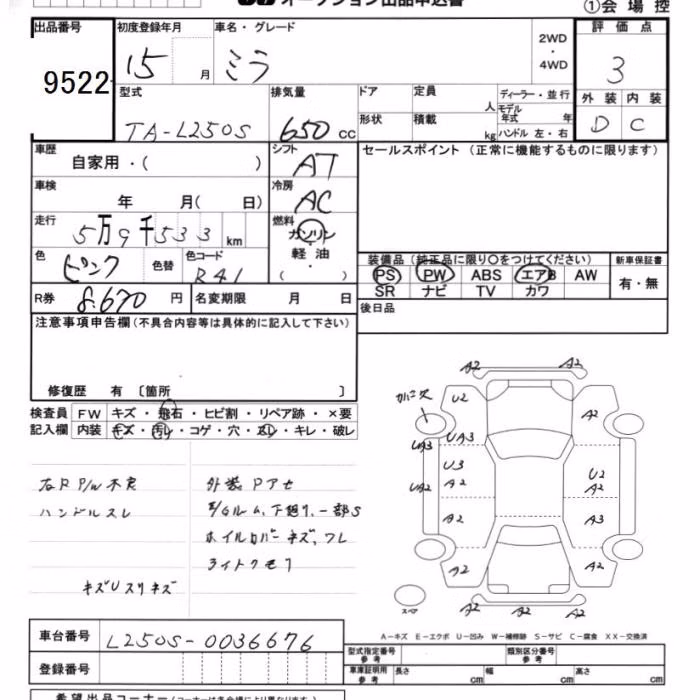 オークション出品申込書 ①会場控
出品番号 初度登録年月 車名・グレード 2WD・4WD 評価点
9522 15 月 ミラ 3
型式 排気量 ドア 定員 人 ディーラー・並行 外装 内装
TA-L250S 650 cc 形状 積載 kg モデル年式 年 ハンドル 左・右 D C
車歴 自家用・( ) シフト AT セールスポイント (正常に機能するものに限ります)
車検 年 月( 日) 冷房 AC
走行 5万9千533km 燃料 ガソリン
軽油
( )
色 ピンク 色替 色コード R41
装備品 (純正品に限り○をつけてください) 新車保証書
PS PW ABS エアB AW 有・無
SR ナビ TV カワ
R券 8,670円 名変期限 月 日 後日品
注意事項申告欄 (不具合内容等は具体的に記入して下さい)
修復歴 有 〔箇所 〕
検査員 FW キズ・飛石・ヒビ割・リペア跡・×要
記入欄 内装 キズ・汚レ・コゲ・穴・スレ・キレ・破レ
右R P/W不良
ハンドルスレ
キズUスリキズ
外装Pアセ
下廻り、一部S
ホイルカバーキズ、ワレ
ライトクモリ
A2 A2
カバー欠 U2 A2
UA3 UA3
U3 U2
UA2 A2 A2
A2 A3
A2 A2
スペア A2 A2 A2
A-キズ E-エクボ U-凹み W-補修跡 S-サビ C-腐食 XX-交換済
車台番号 L250S-0036676
型式指定番号 参考 類別区分番号 参考
登録番号 車庫証明用 参考 長さ cm 幅 cm 高さ cm
希望出品コーナー